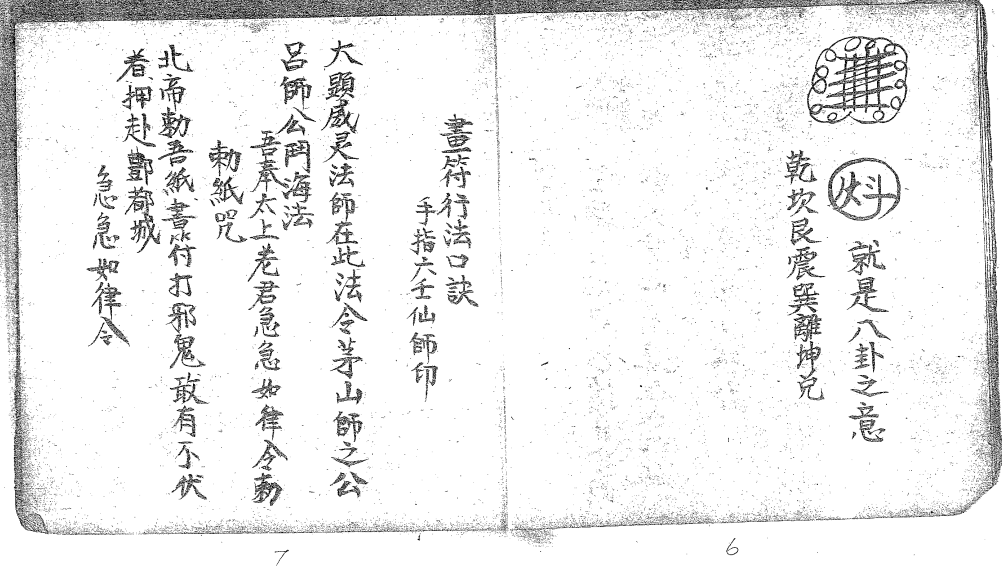 㪵
就是八卦之意
乾坎艮震巽離坤兌
6
畫符行法口訣
手指六壬仙師印
大顯威灵法師在此法令茅山師之公
呂師公閗海法
吾奉太上老君急急如律令勅
勅紙咒
北帝勅吾紙書符打邪鬼敢有不伏
者押赴酆都城
急急如律令
7